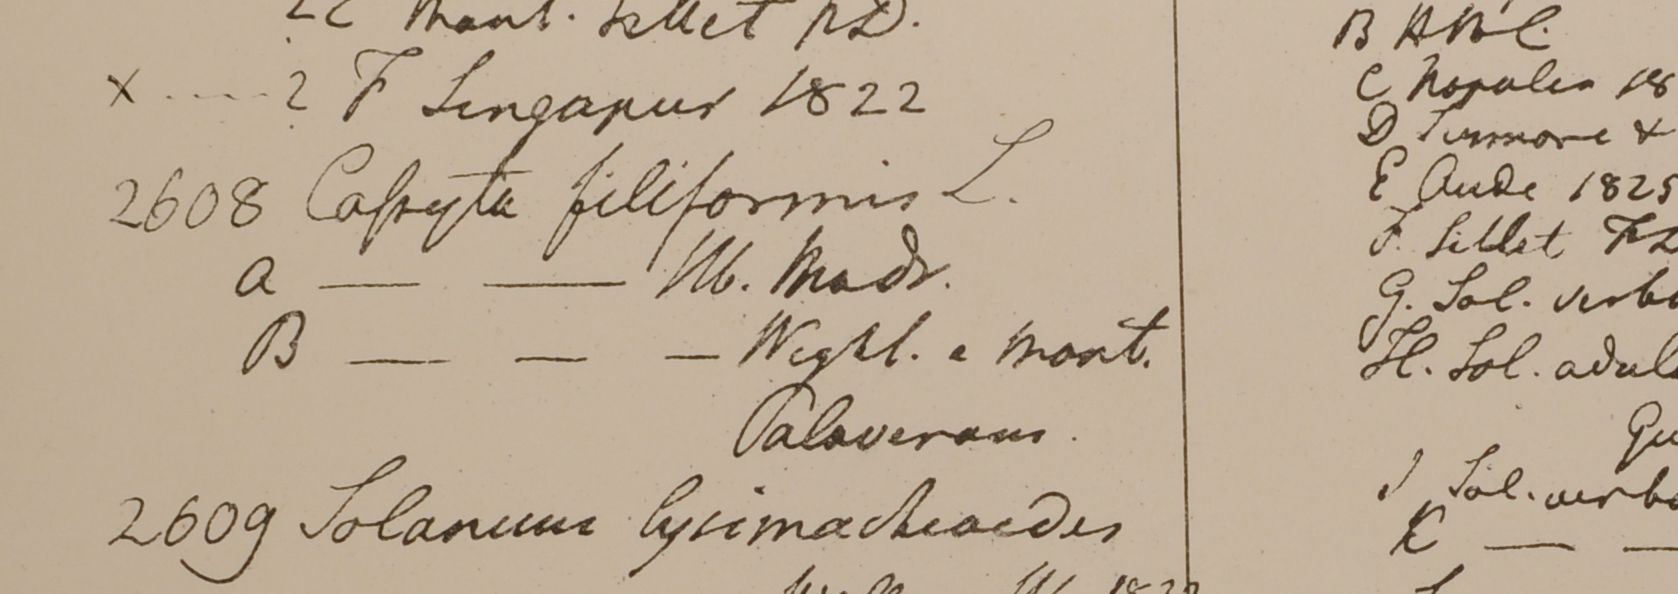 22 Mont. Sillet F.D.
x ---- 2 F Singapur 1822
2608 Cassyta filiformis L.
a — — Hb. Madr.
B — — — Wight. e mont.
Palaveram.
2609 Solanum lysimachioides
Wall. Hb. 1823
B HBC.
C Napalia 18
D Sirmore &
E Oude 1825
F. Sillet FD
G. Sol. verba
H. Sol. adul
Gu
I Sol. verba
K — —